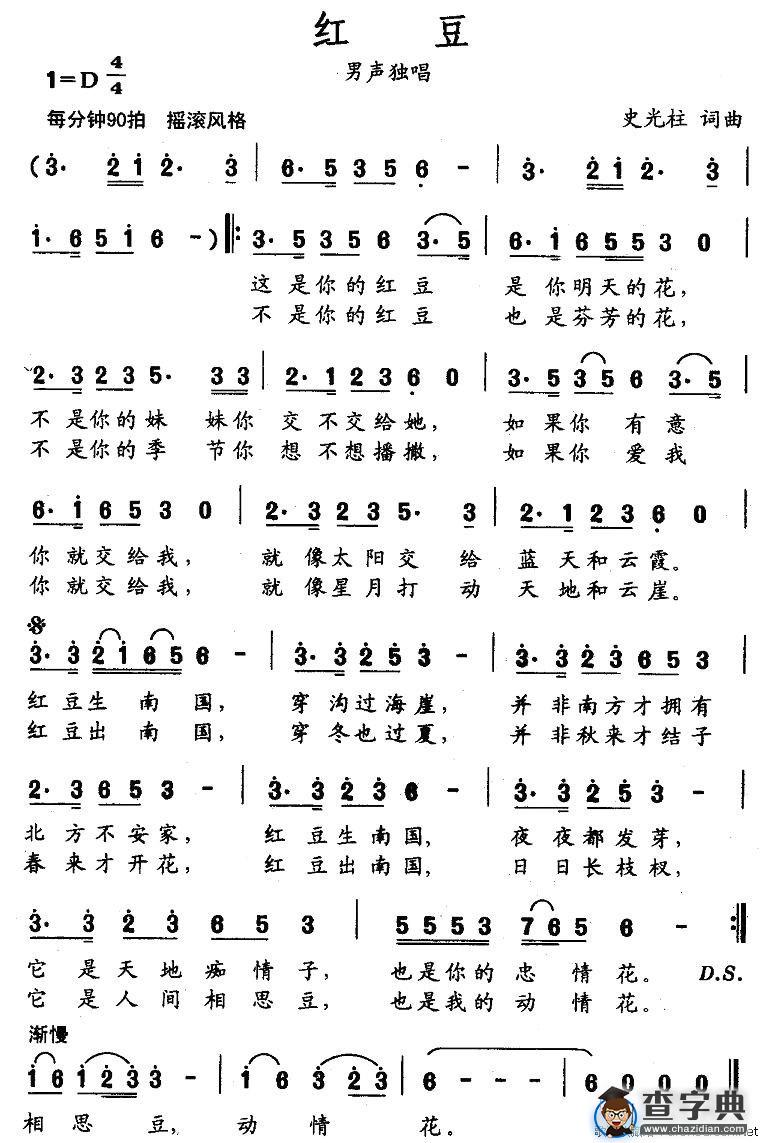 红 豆
男声独唱
1=D 4/4
每分钟90拍 摇滚风格
史光柱 词曲
(3· 2 1 2· 3 | 6· 5 3 5 6 - | 3· 2 1 2· 3 |
1· 6 5 1 6 - ) ‖: 3· 5 3 5 6 3· 5 | 6· 1 6 5 5 3 0 |
这 是你的红豆 是 你明天的花,
不 是你的红豆 也 是芬芳的花,
2· 3 2 3 5· 3 3 | 2· 1 2 3 6 0 | 3· 5 3 5 6 3· 5 |
不 是你的妹 妹你 交 不交给她, 如 果你 有意
不 是你的季 节你 想 不想播撒, 如 果你 爱我
6· 1 6 5 3 0 | 2· 3 2 3 5· 3 | 2· 1 2 3 6 0 |
你 就交给我, 就 像太阳交 给 蓝 天和云霞。
你 就交给我, 就 像星月打 动 天 地和云崖。
3· 3 2 1 6 5 6 - | 3· 3 2 5 3 - | 3· 3 2 3 6 5 3 |
红 豆生 南 国, 穿 沟过海崖, 并 非南方才拥有
红 豆出 南 国, 穿 冬也过夏, 并 非秋来才结子
2· 3 6 5 3 - | 3· 3 2 3 6 - | 3· 3 2 5 3 - |
北 方不安家, 红 豆生南国, 夜 夜都发芽,
春 来才开花, 红 豆出南国, 日 日长枝杈,
3· 3 2 3 6 5 3 | 5 5 5 3 7 6 5 6 - :‖
它 是天地痴情子, 也是你的忠 情花。 D.S.
它 是人间相思豆, 也是我的动 情花。
渐慢
1 6 1 2 3 3 - | 1 2 3 1 2 1 | 6 - - - | 6 0 0 0 ‖
相思 豆, 动 情 花。
查字典
www.chazidian.com